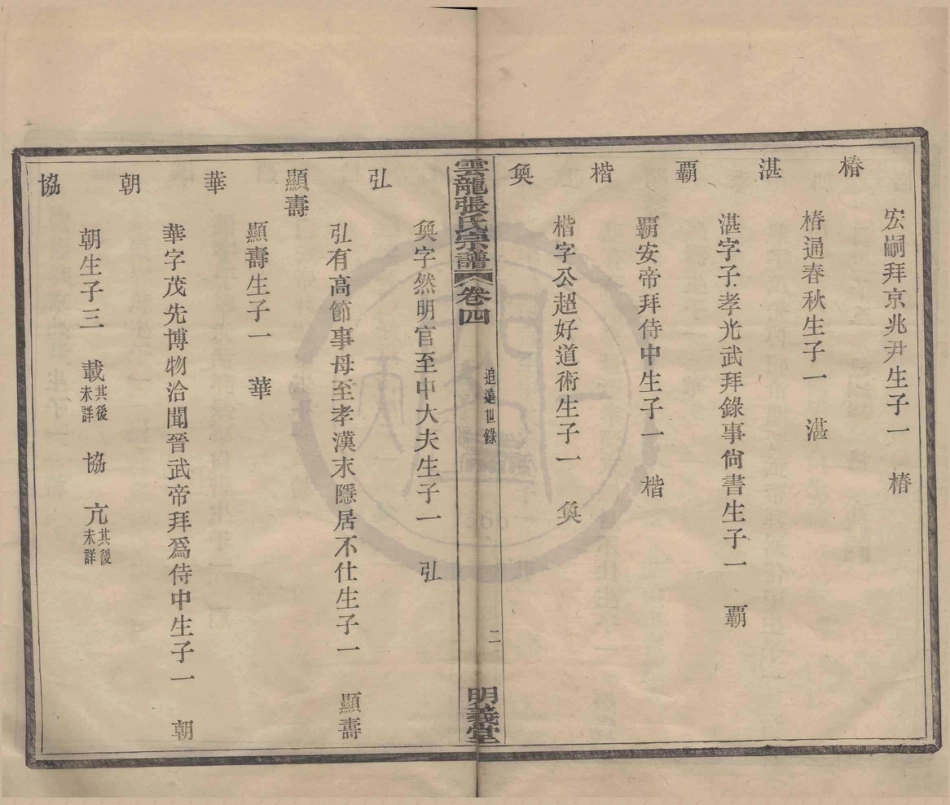 宏嗣拜京兆尹生子一　椿
椿
椿通春秋生子一　湛
湛
湛字子孝光武拜錄事尙書生子一　覇
覇
覇安帝拜侍中生子一　楷
楷
楷字公超好道術生子一　奐
奐
雲龍張氏宗譜　卷四　追遠世錄　二　明義堂
奐字然明官至中大夫生子一　弘
弘
弘有高節事母至孝漢末隱居不仕生子一　顯壽
顯壽
顯壽生子一　華
華
華字茂先博物洽聞晉武帝拜爲侍中生子一　朝
朝
朝生子三　載其後未詳　協　亢其後未詳
協